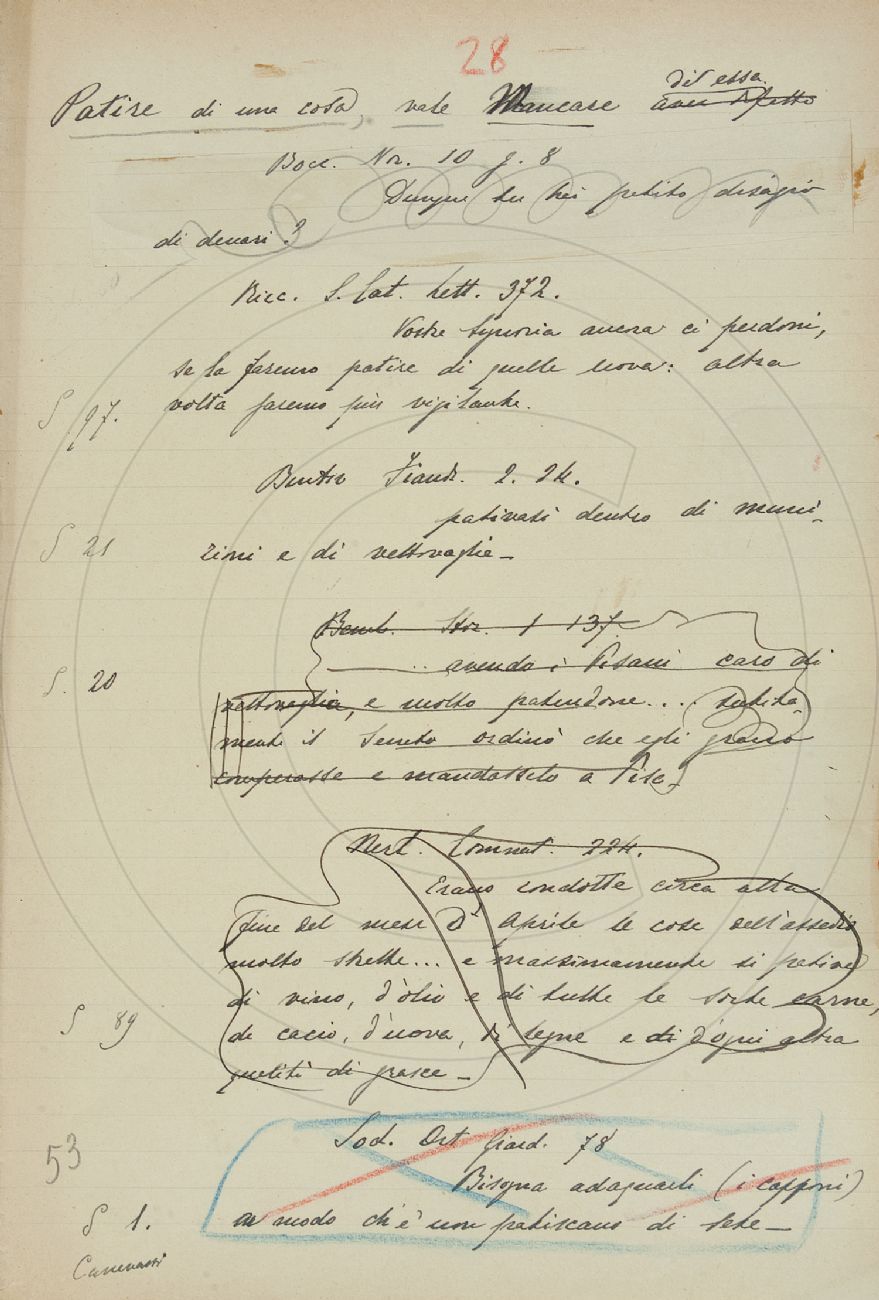 28
di essa
Patire di una cosa, vale Mancare
Bocc. Nov. 10 g. 8
Dunque tu hai patito disagio
di denari?
Ricc. S. Cat. Lett. 372.
Vostra Signoria ancora ci perdoni,
se la faremo patire di quelle uova: altra
S 97. volta faremo più vigilante.
Bentiv Fiand. 2. 24.
pativasi dentro di muni-
S 21 zioni e di vettovaglie —
Bemb. Stor. 1 137.
... avendo i Pisani caro di
S. 20 vettovaglia, e molto patendone... subita-
mente il Senato ordinò che egli grano
comperasse e mandasselo a Pisa —
Nerl. Comment. 224.
Erano condotte circa alla
fine del mese d'Aprile le cose dell'assedio
molto strette... e massimamente si pativa
di vino, d'olio e di tutte le sorte carne,
S 89 di cacio, d'uova, di legne e di d'ogni altra
di grasce —
Sod. Ort Giard. 78
53
Bisogna adaquarli (i capponi)
S 1. in modo ch'e' non patiscano di sete —